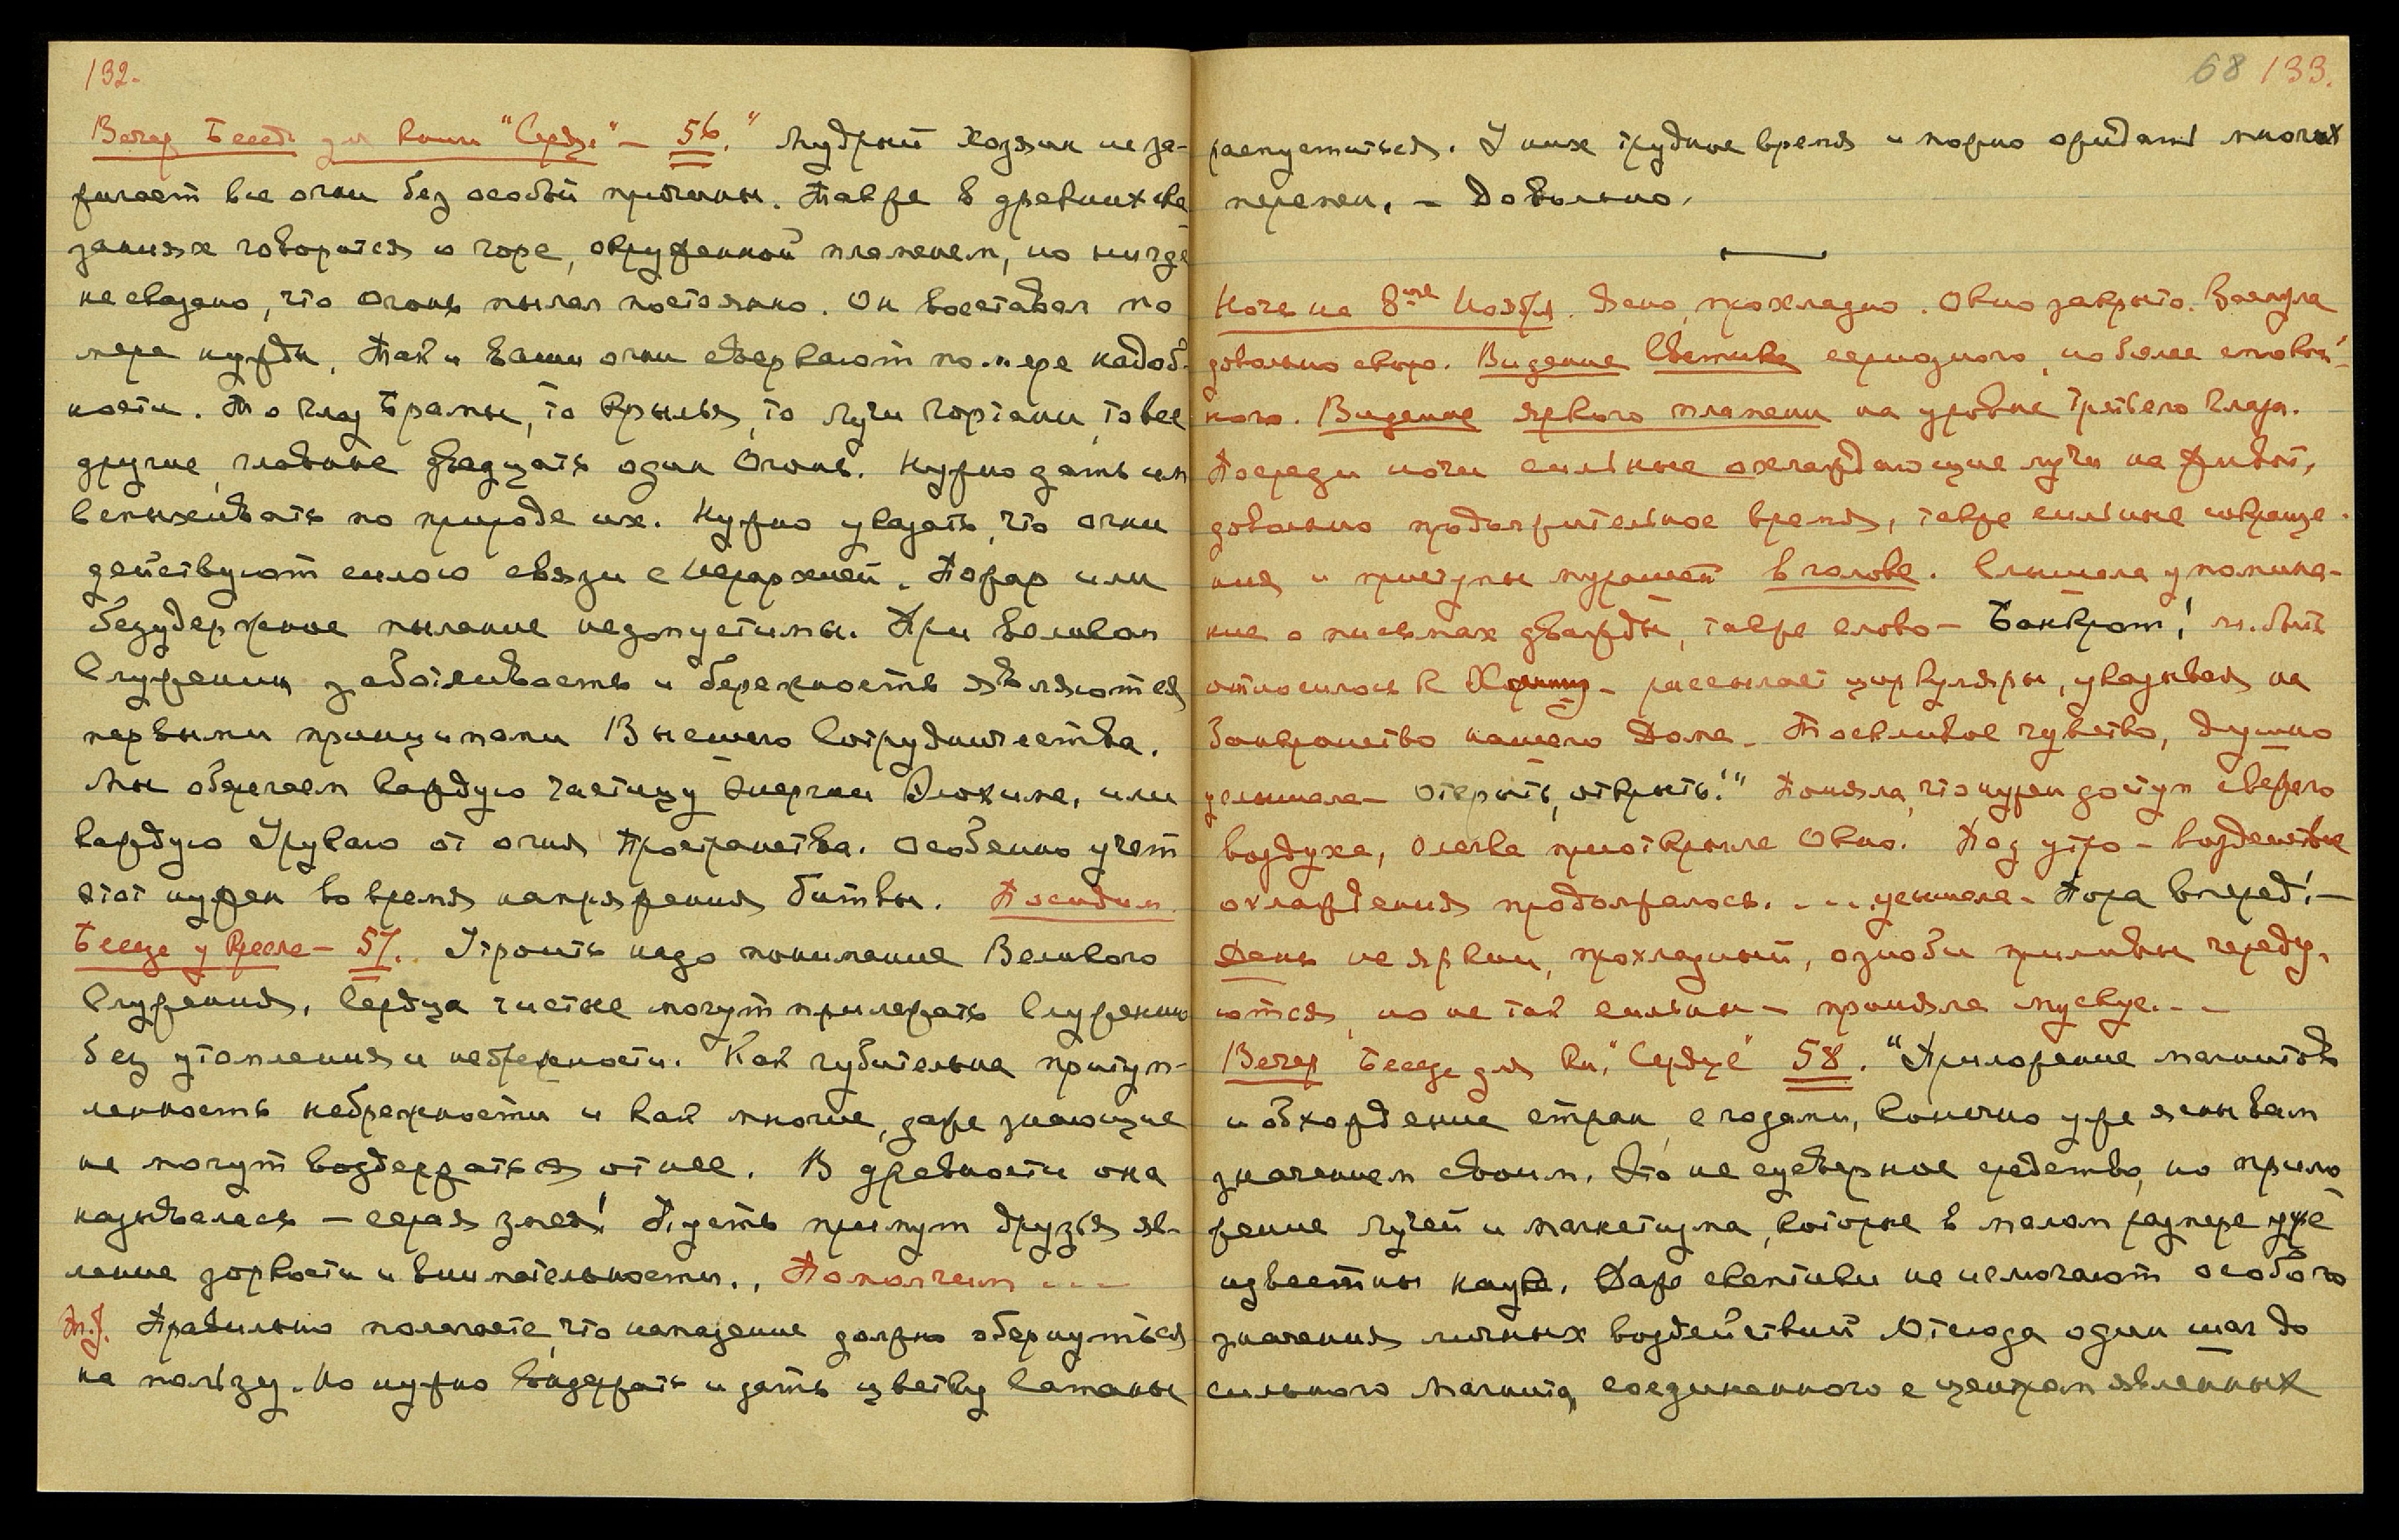 132.
Вечер Беседа для Книги "Сердце" – 56. "Мудрый хозяин не за-
жигает все огни без особой причины. Также в древних ска
заниях говорится о горе, окруженной пламенем, но нигде
не сказано, что огонь пылал постоянно. Он восставал по
мере нужды. Так и Ваши огни сверкают по мере надоб-
ности. То глаз Брамы, то Крылья, то лучи гортани, то все
другие главные двадцать один Огонь. Нужно дать им
вспыхивать по природе их. Нужно указать, что огни
действуют силою связи с Иерархией. Пожар или
безудержное пылание недопустимы. При великом
Служении заботливость и бережность являются
первыми принципами Высшего Сотрудничества.
Мы оберегаем каждую частицу Энергии Элохима, или
каждую Урукаю от огня Пространства. Особенно учет
этот нужен во время напряжения битвы. Посидим
Беседа у Кресла – 57. Утроить надо понимание Великого
Служения. Сердца чистые могут прилежать Служению
без утомления и небрежности. Как губительна притуп-
ленность небрежности и как многие, даже знающие
не могут воздержаться от нее. В древности она
называлась – серая змея! Пусть примут друзья яв-
ление зоркости и внимательности.. Помолчим ...
Правильно полагаете, что нападение должно обернуться
на пользу. Но нужно выдержать и дать цветку Сатаны
68 133.
распуститься. У них трудное время и можно ожидать многих
перемен. – Довольно.
Ночь на 8ое Ноября. Ясно, прохладно. Окно закрыто. Заснула
довольно скоро. Видение Светика серьезного, но более спокой-
ного. Видение яркого пламени на уровне третьего глаза.
Посреди ночи сильные охлаждающие лучи на живот,
довольно продолжительное время, также сильные сокраще-
ния и приступы мурашей в голове. Слышала упомина-
ние о письмах дважды, также слово – Банкрот! м. быть
относилось к рассылает циркуляры, указывая на
банкротство нашего Дома. Тоскливое чувство, душно
услышала – Открыть, открыть!" Поняла, что нужен доступ свежего
воздуха, слегка приоткрыла Окно. Под утро – воздействие
охлаждения продолжалось. ... услышала – Пора вперед! –
День не яркий, прохладный, ознобы приливы череду-
ются, но не так сильны – приняла мускус. ..
Вечер Беседа для Кн. "Сердце" 58. "Приложение магнитов
и обхождение стран с годами, конечно уже ясны вам
значением своим. Это не суеверное средство, но прило
жение лучей и магнетизма, которые в малом размере уже
известны науке. Даже скептики не исмогают особого
значения личных воздействий Отсюда один шаг до
сильного Магнита, соединенного с центром явленных